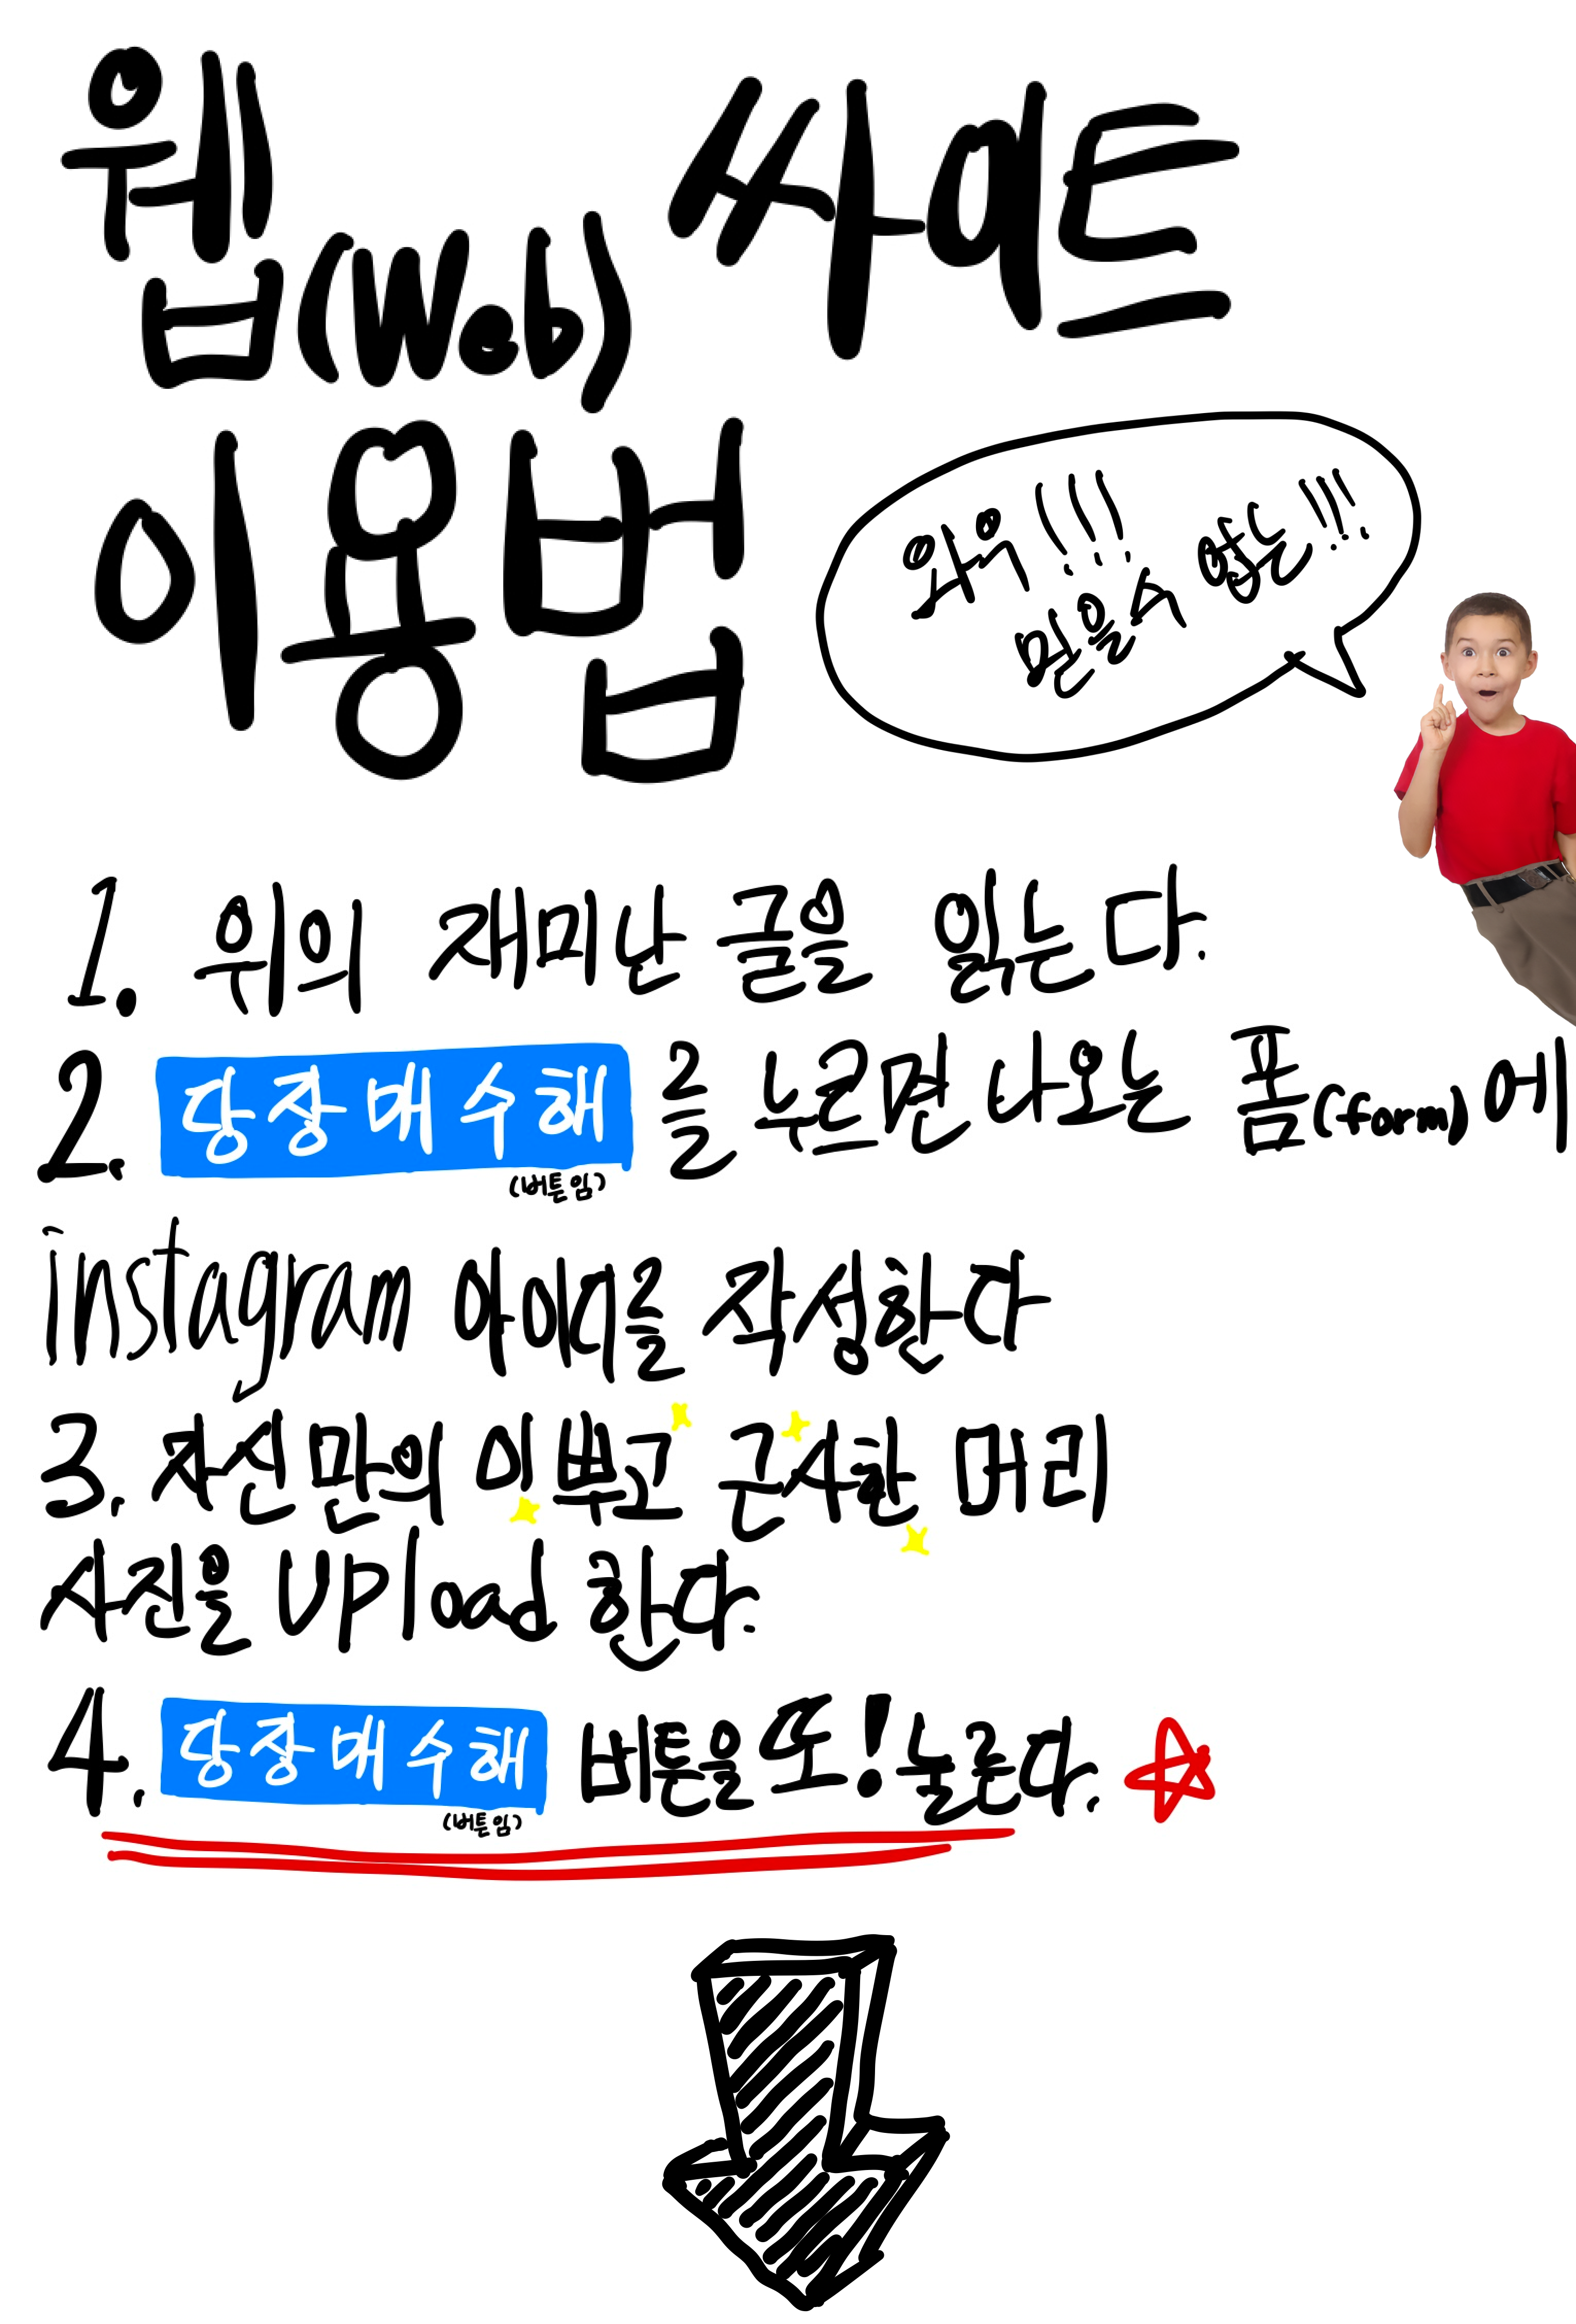 웹(Web) 싸이트
이용법
와우!!!!
믿을 수 없는!!!!
1. 위의 재미난 글을 읽는다.
2. 당장매수해 를 누르면 나오는 폼(form)에
(버튼임)
instagram 아이디를 작성한다
3. 자신만의 이쁘고 근사한 머리
사진을 UPload 한다.
4. 당장매수해 버튼을 또! 눌른다.
(버튼임)